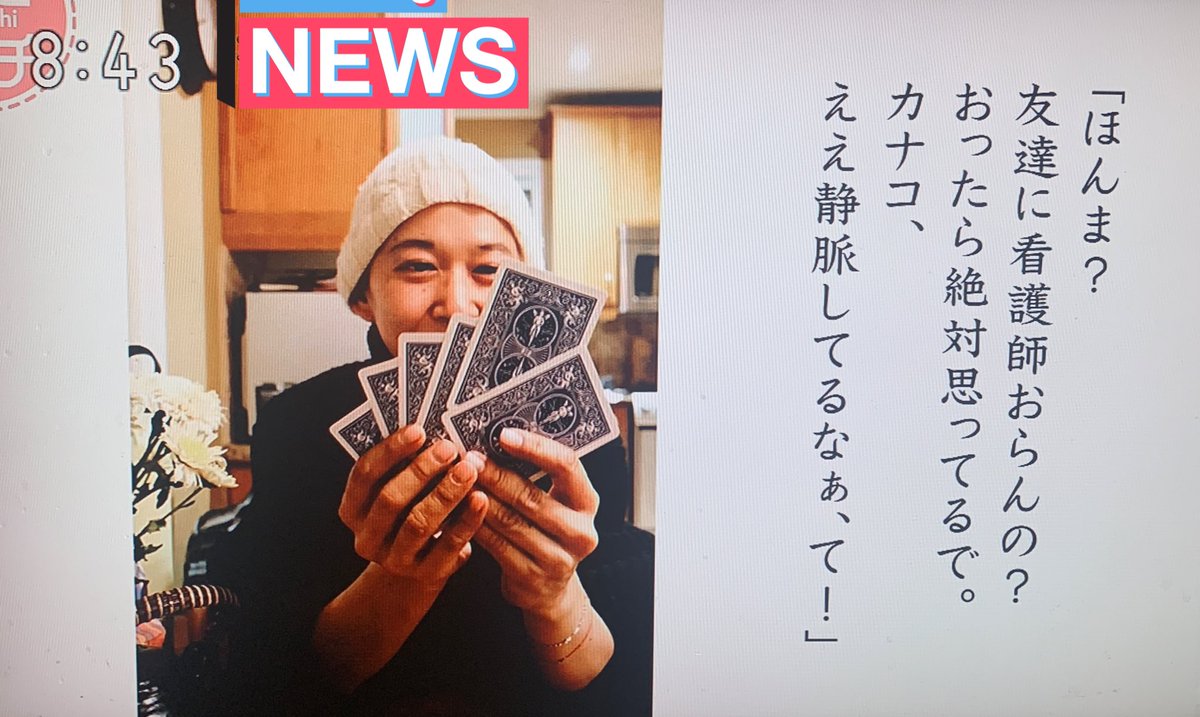 hi
8:43
NEWS
「ほんま?
友達に看護師おらんの?
おったら絶対思ってるで。
カナコ、
ええ静脈してるなぁ、て!」